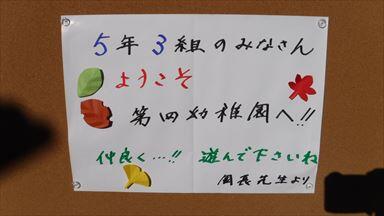 5年3組のみなさん
ようこそ
第四幼稚園へ!!
仲良く…!! 遊んで下さいね
園長先生より